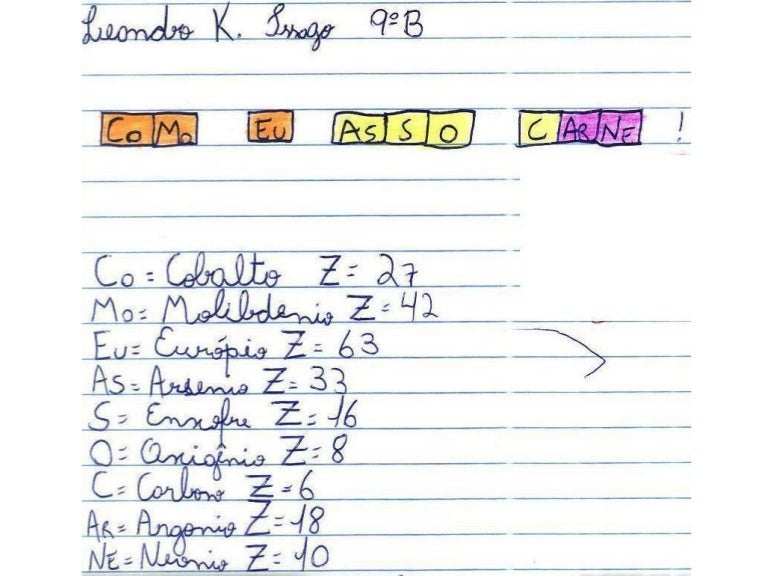 Leandro K. Issago 9ºB
Co Mo Eu As S O C Ar Ne !
Co = Cobalto Z = 27
Mo = Molibdenio Z = 42
Eu = Európio Z = 63
As = Arsenio Z = 33
S = Enxofre Z = 16
O = Oxigênio Z = 8
C = Carbono Z = 6
Ar = Argonio Z = 18
Ne = Neonio Z = 10